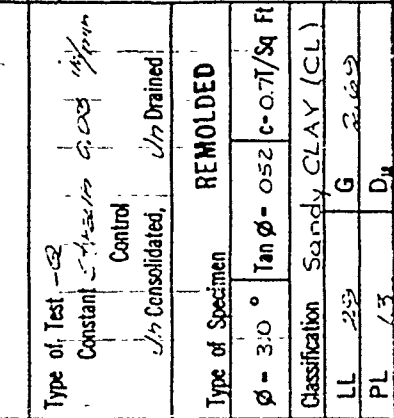 Type of Test - Q
Constant Strain 0.03 in/min
Control
Un Consolidated, Un Drained
Type of Specimen REMOLDED
Ø = 3.0 ° Tan Ø = 052 c = 0.7T/Sq Ft
Classification Sandy CLAY (CL)
LL 29 G 2.69
PL 13 D